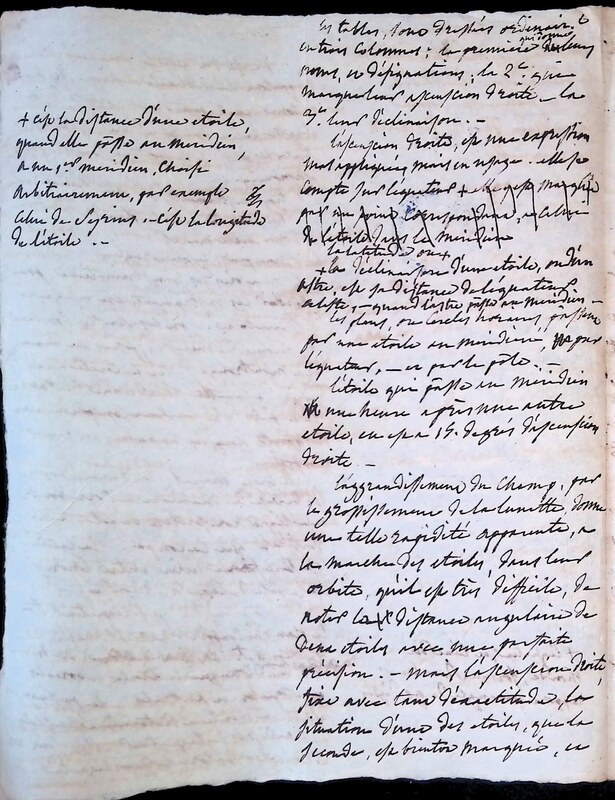 les tables, sont dressées ordinair.t
en trois colonnes; la première qui donne leurs
noms, ou désignations; la 2.e que
marque leur ascension droite — la
3.e leur déclinaison. —
l'ascension droite, est une expression
mal appliquée, mais en usage. elle se
compte sur l'equateur +
de l'étoile sur le méridien
la latitude ou +
+ la declinaison d'une etoile, ou d'un
astre, est sa distance de l'equateur
celeste, — quand l'astre passe au meridien —
les plans, ou cercles horaires, passent
par une etoile au meridien, par
l'équateur, — et par le pôle. —
l'étoile qui passe au meridien
une heure après une autre
etoile, en est a 15. degrés d'ascension
droite —
l'aggrandissement du champ, par
le grossissement de la lunette, donne
une telle rapidité apparente, a
la marche des etoiles, dans leur
orbite, qu'il est très difficile, de
noter la distance angulaire de
deux etoiles avec une parfaite
précision. — mais l'ascension droite
fixe avec tant d'exactitude, la
situation d'une des etoiles, que la
seconde, est bientôt marquée, en
+ c'est la distance d'une etoile,
quand elle passe au meridien,
a un 1.er meridien, choisi
arbitrairement, par exemple
celui de — c'est la longitude
de l'étoile. —